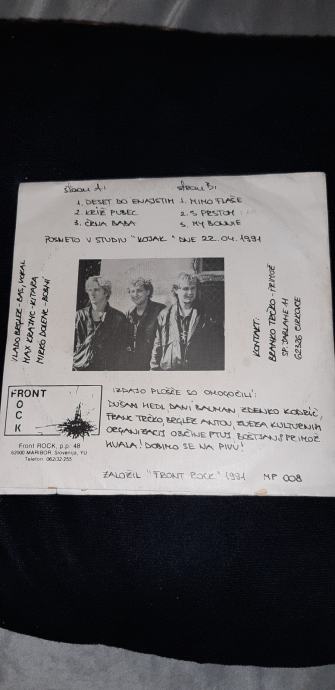 STRAN A: STRAN B:
1. DESET DO ENAJSTIH 1. MIMO FLAŠE
2. KRIŽ PUBEC 2. S PRSTOM
3. ČRNA BABA 3. MY BONNIE
POSNETO V STUDIU "KOJAK" DNE 22.04.1991
VLADO BRGLEZ - BAS, VOKAL
MAX KRAJNC - KITARA
MIRKO DOLENC - BOBNI
KONTAKT:
BRANKO TEČKO - PRIMOŽ
SP. JABLANE 11
62326 CIRKOVCE
FRONT
R
O
C
K
Front ROCK, p.p. 48
62000 MARIBOR, Slovenija, YU
Telefon: 062/32-255
IZDAJO PLOŠČE SO OMOGOČILI:
DUŠAN HEDL, DANI BAUMAN, ZDENKO KODRIČ,
FRANC TEČKO, BRGLEZ ANTON, ZVEZA KULTURNIH
ORGANIZACIJ OBČINE PTUJ, BOŠTJAN & PRIMOŽ
HVALA! DOBIMO SE NA PIVU!
ZALOŽIL "FRONT ROCK" 1991 MP 008